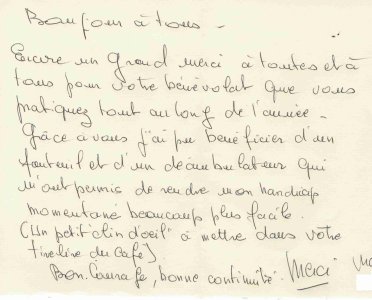 Bonjour à tous -
Encore un grand merci à toutes et à
tous pour votre bénévolat que vous
pratiquez tout au long de l'année -
Grâce à vous j'ai pu bénéficier d'un
fauteuil et d'un déambulateur qui
m'ont permis de rendre mon handicap
momentané beaucoup plus facile.
(Un petit clin d'oeil à mettre dans votre
tirelire du café)
Bon Courage, bonne continuité. Merci